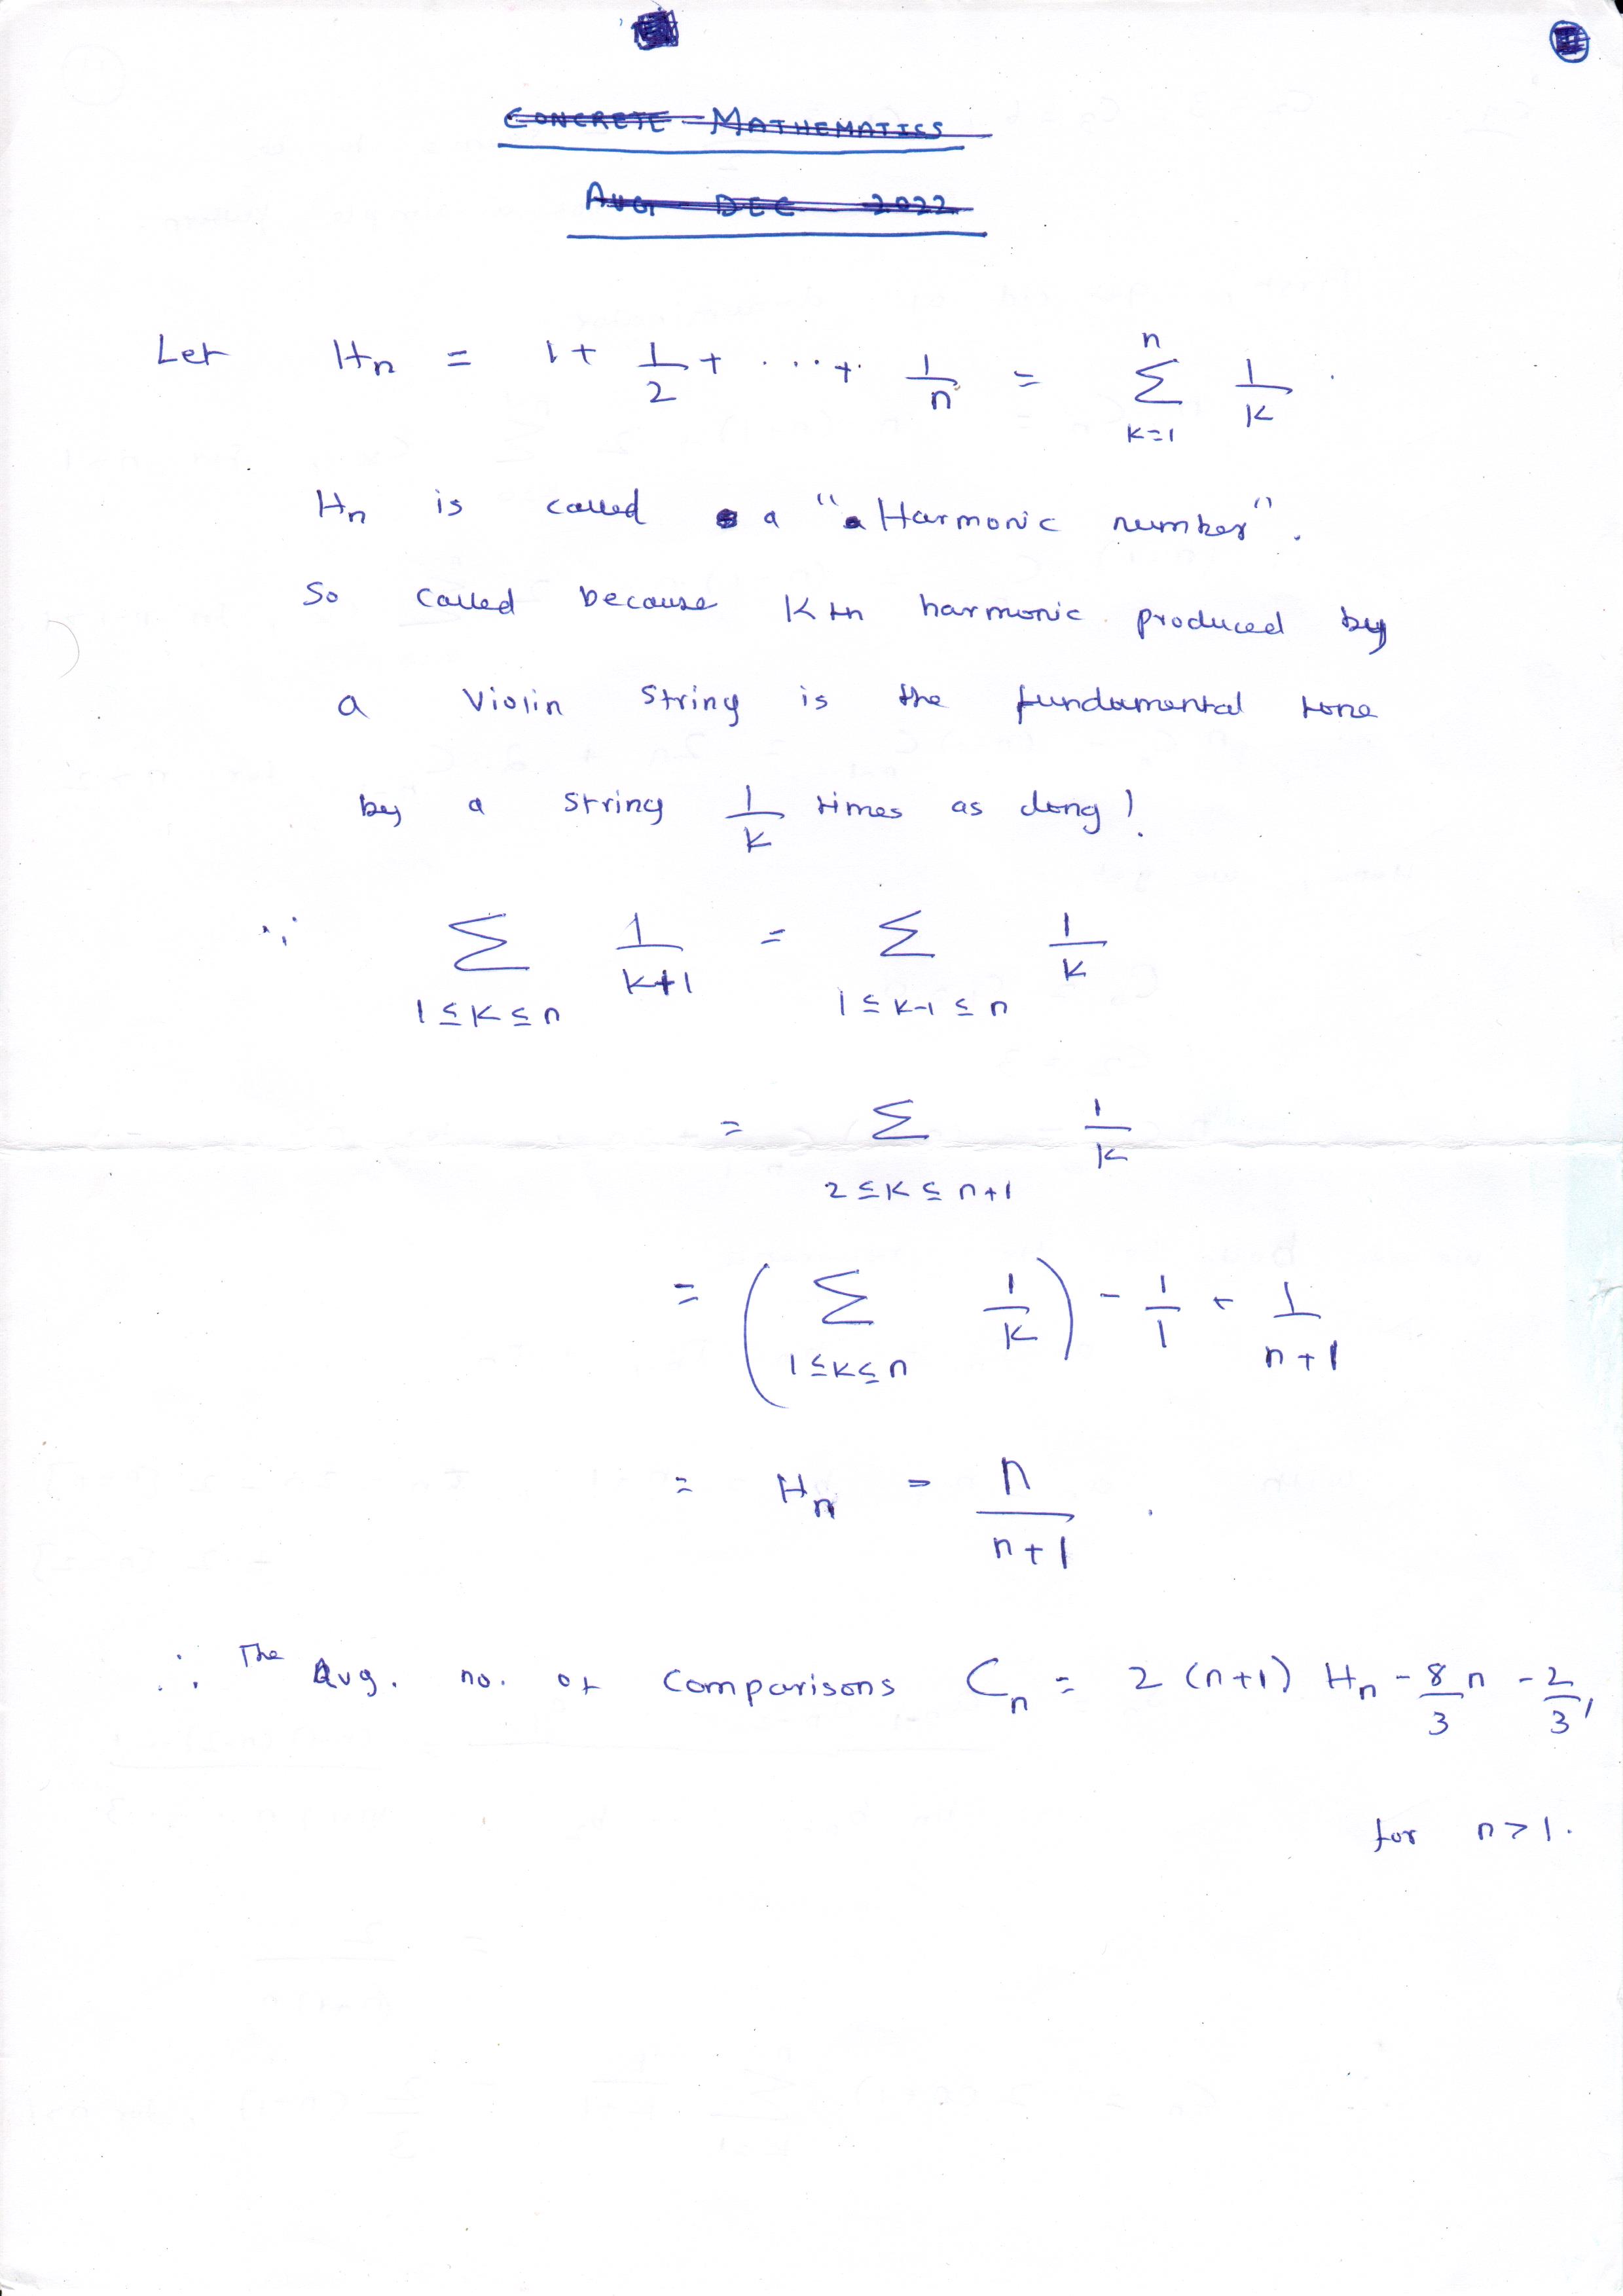 CONCRETE MATHEMATICS
AUG DEC 2022
Let Hn = 1 + 1/2 + ... + 1/n = Σ_{k=1}^{n} 1/k .
Hn is called a "Harmonic number".
So called because Kth harmonic produced by
a Violin String is the fundamental tone
by a string 1/k times as long!
∵ Σ_{1≤K≤n} 1/(k+1) = Σ_{1≤k-1≤n} 1/k
= Σ_{2≤K≤n+1} 1/k
= ( Σ_{1≤k≤n} 1/k ) - 1/1 + 1/(n+1)
= Hn - n/(n+1) .
∴ The Avg. no. of Comparisons Cn = 2 (n+1) Hn - 8/3 n - 2/3,
for n>1.